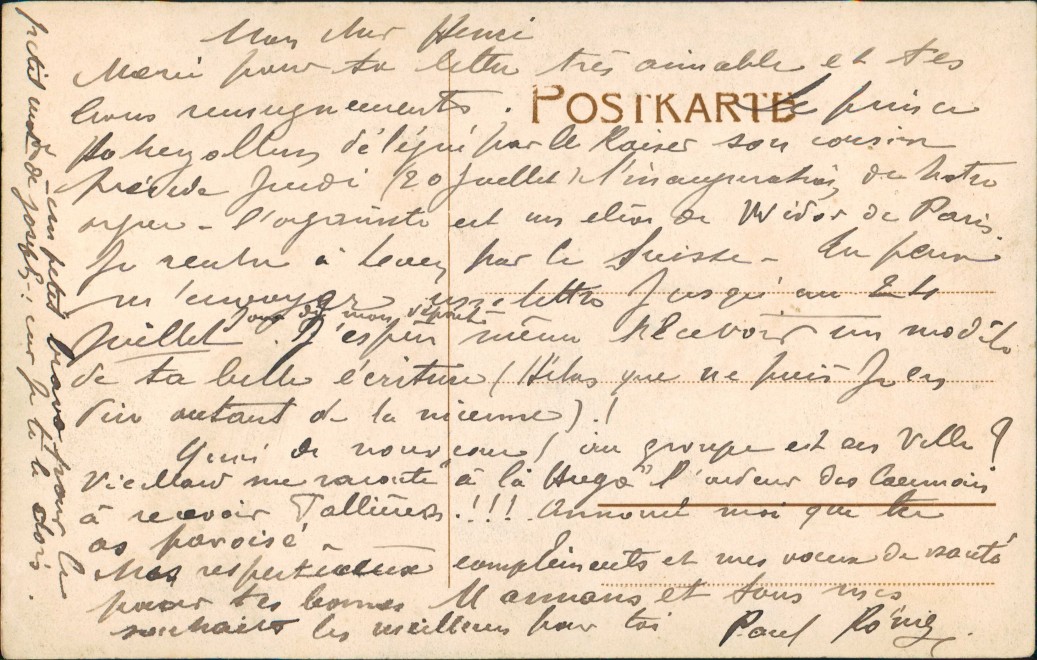 Mon cher Henri
Merci pour ta lettre très aimable et tes
bons renseignements. Le prince
POSTKARTE
Hohenzollern délégué par le Kaiser son cousin
préside Jeudi (20 Juillet) l'inauguration de notre
orgue - l'organiste est un élève de Widor de Paris.
Je rentre à par la Suisse - Tu peux
m'envoyer une lettre Jusqu'au 24
Juillet jour de mon départ. J'espère même recevoir un modèle
de ta belle écriture (Hélas que ne puis Je en
dire autant de la mienne)!
Quoi de nouveau / au groupe et en Ville?
me raconte à la Hugo l'ardeur des Caennais
à recevoir Fallières.!!! Annonce moi que tu
as pavoisé -
Mes respectueux compliments et mes voeux de santé
pour tes bonnes Mamans et tous mes
souhaits les meilleurs pour toi Paul
petit mot de Joseph: car je le lui dois.
- un petit bravo pour le